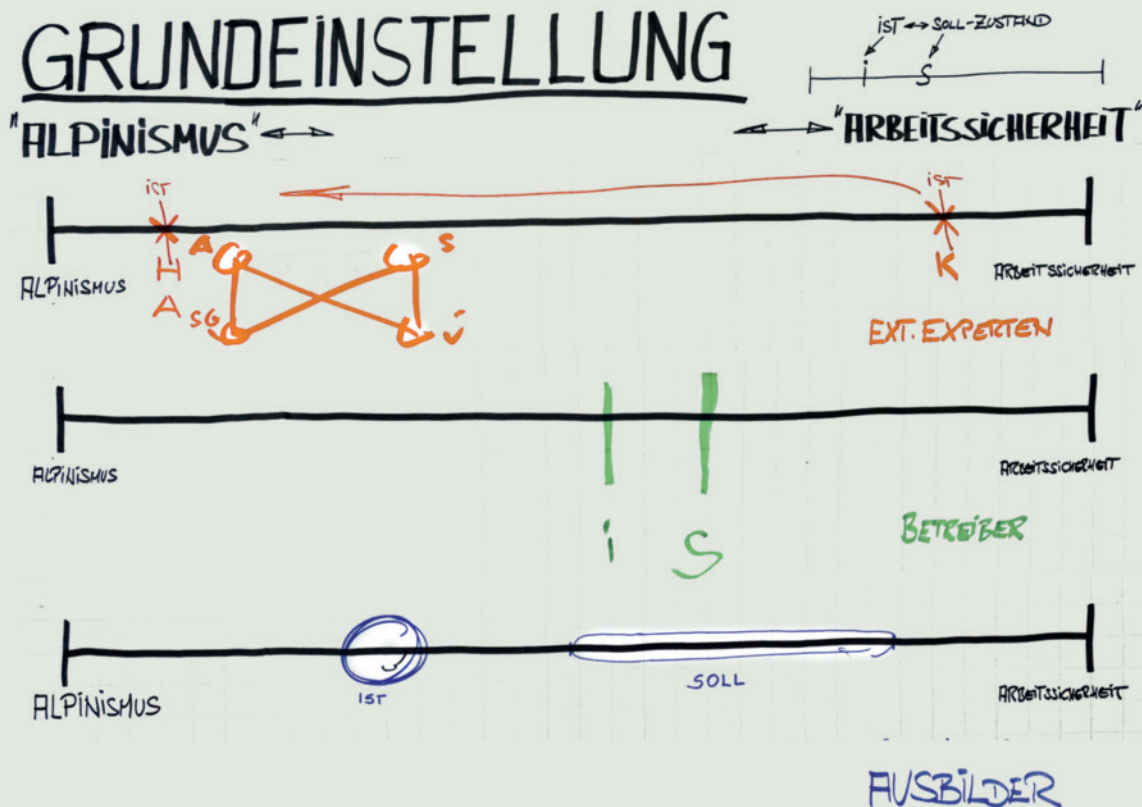 GRUNDEINSTELLUNG
iST ↔ SOLL-ZUSTAND
i S
"ALPiNiSMUS" ↔
↔ "ARBEiTSSiCHERHEiT"
iST
iST
A
S
H
K
ALPiNiSMUS
ARBEiTSSiCHERHEiT
A
SG
Ü
EXT. EXPERTEN
ALPiNiSMUS
ARBEiTSSiCHERHEiT
i S
BETREiBER
iST
SOLL
ALPiNiSMUS
ARBEiTSSiCHERHEiT
AUSBiLDER